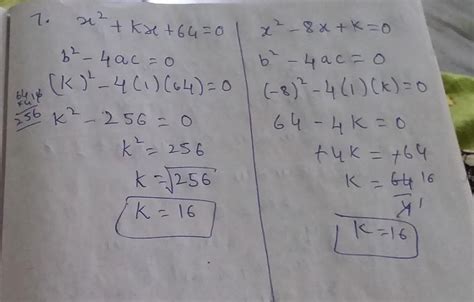 7. x² + Kx + 64 = 0
b² - 4ac = 0
(K)² - 4(1)(64) = 0
256
K² - 256 = 0
K² = 256
K = √256
K = 16
x² - 8x + K = 0
b² - 4ac = 0
(-8)² - 4(1)(K) = 0
64 - 4K = 0
+4K = +64
K = 64 16
4 1
K = 16